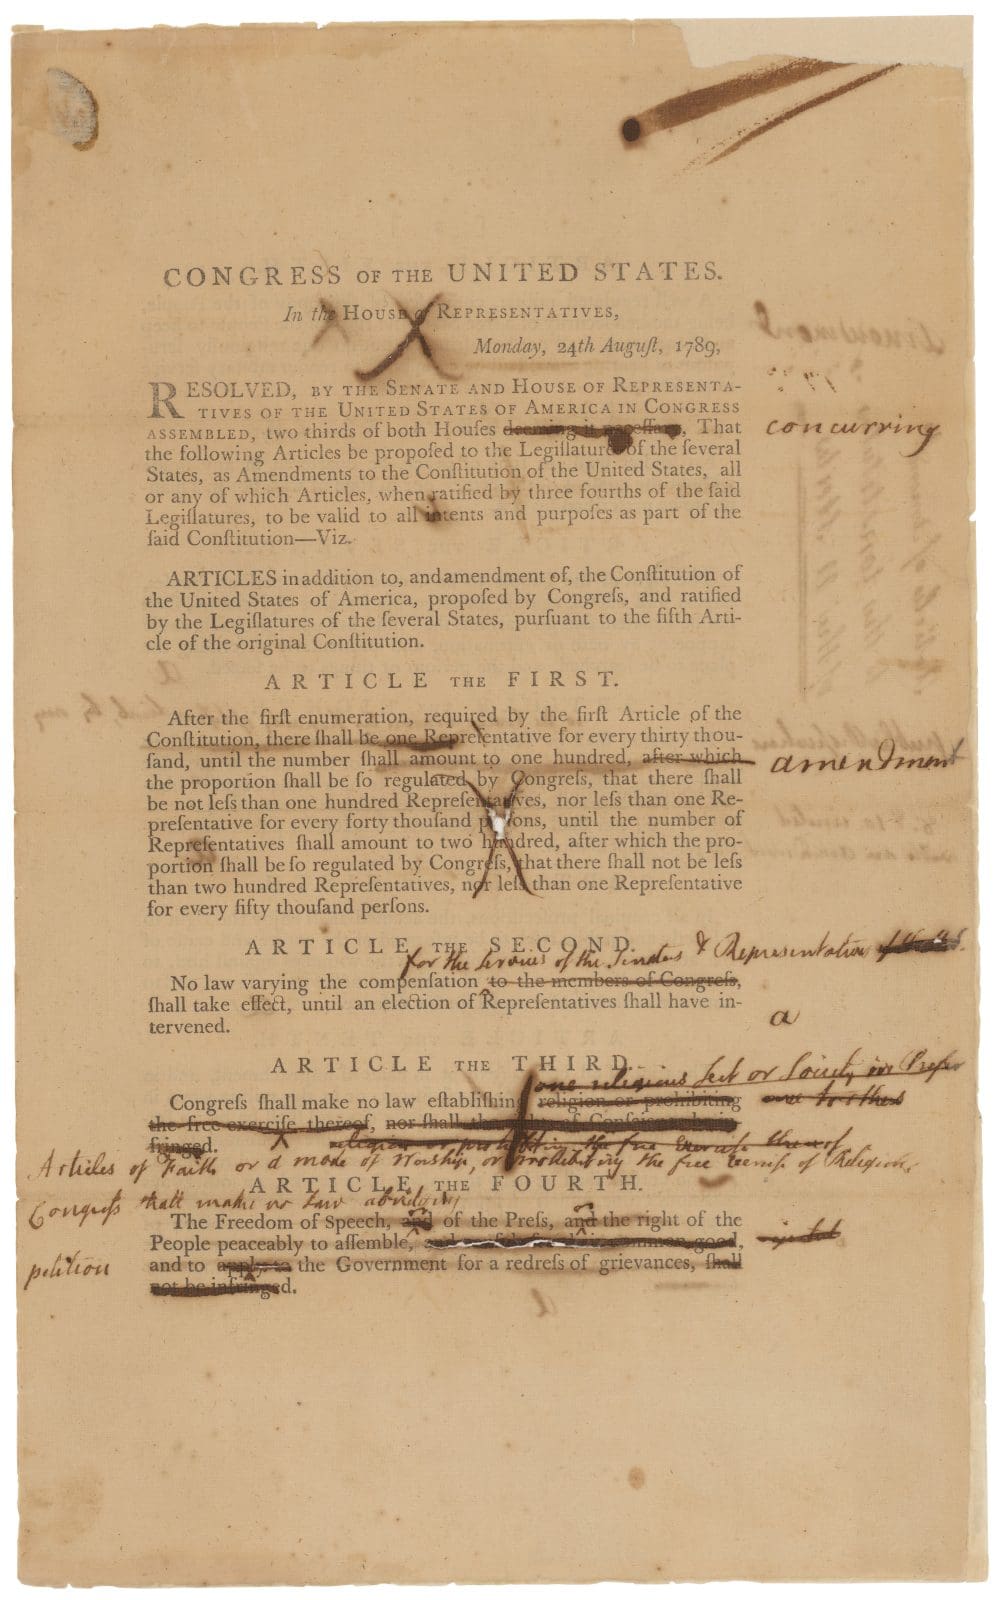 CONGRESS OF THE UNITED STATES.
In the HOUSE of REPRESENTATIVES,
Monday, 24th Auguſt, 1789,
RESOLVED, BY THE SENATE AND HOUSE OF REPRESENTA-
TIVES OF THE UNITED STATES OF AMERICA IN CONGRESS
ASSEMBLED, two thirds of both Houſes deeming it neceſſary, That
concurring
the following Articles be propoſed to the Legiſlatures of the ſeveral
States, as Amendments to the Conſtitution of the United States, all
or any of which Articles, when ratified by three fourths of the ſaid
Legiſlatures, to be valid to all intents and purpoſes as part of the
ſaid Conſtitution—Viz.
ARTICLES in addition to, and amendment of, the Conſtitution of
the United States of America, propoſed by Congreſs, and ratified
by the Legiſlatures of the ſeveral States, purſuant to the fifth Arti-
cle of the original Conſtitution.
ARTICLE THE FIRST.
After the firſt enumeration, required by the firſt Article of the
Conſtitution, there ſhall be one Repreſentative for every thirty thou-
ſand, until the number ſhall amount to one hundred, after which
amendment
the proportion ſhall be ſo regulated by Congreſs, that there ſhall
be not leſs than one hundred Repreſentatives, nor leſs than one Re-
preſentative for every forty thouſand perſons, until the number of
Repreſentatives ſhall amount to two hundred, after which the pro-
portion ſhall be ſo regulated by Congreſs, that there ſhall not be leſs
than two hundred Repreſentatives, nor leſs than one Repreſentative
for every fifty thouſand perſons.
ARTICLE THE SECOND.
for the services of the Senators & Representatives
No law varying the compenſation to the members of Congreſs,
ſhall take effect, until an election of Repreſentatives ſhall have in-
tervened.
a
ARTICLE THE THIRD.
one religious Sect or Society in Prefer
Congreſs ſhall make no law eſtabliſhing religion or prohibiting
ence to others
the free exerciſe thereof, nor ſhall the of Conſcience be in-
fringed.
religion or prohibiting the free exercise thereof
Articles of Faith or a mode of Worship, or prohibiting the free exercise of Religion,
ARTICLE THE FOURTH.
Congreſs shall make no law abridging
The Freedom of Speech, and of the Preſs, and the right of the
or or
People peaceably to aſſemble, common good,
petition
and to apply to the Government for a redreſs of grievances, ſhall
not be infringed.